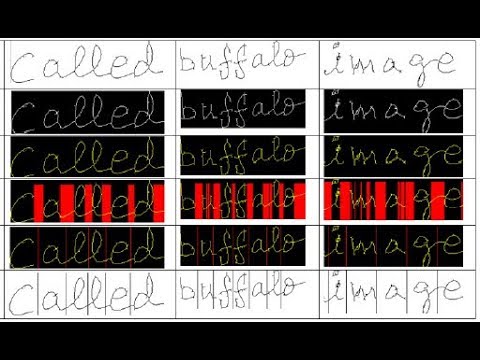 Called buffalo image
Called buffalo image
Called buffalo image
Called buffalo image
Called buffalo image
Called buffalo image